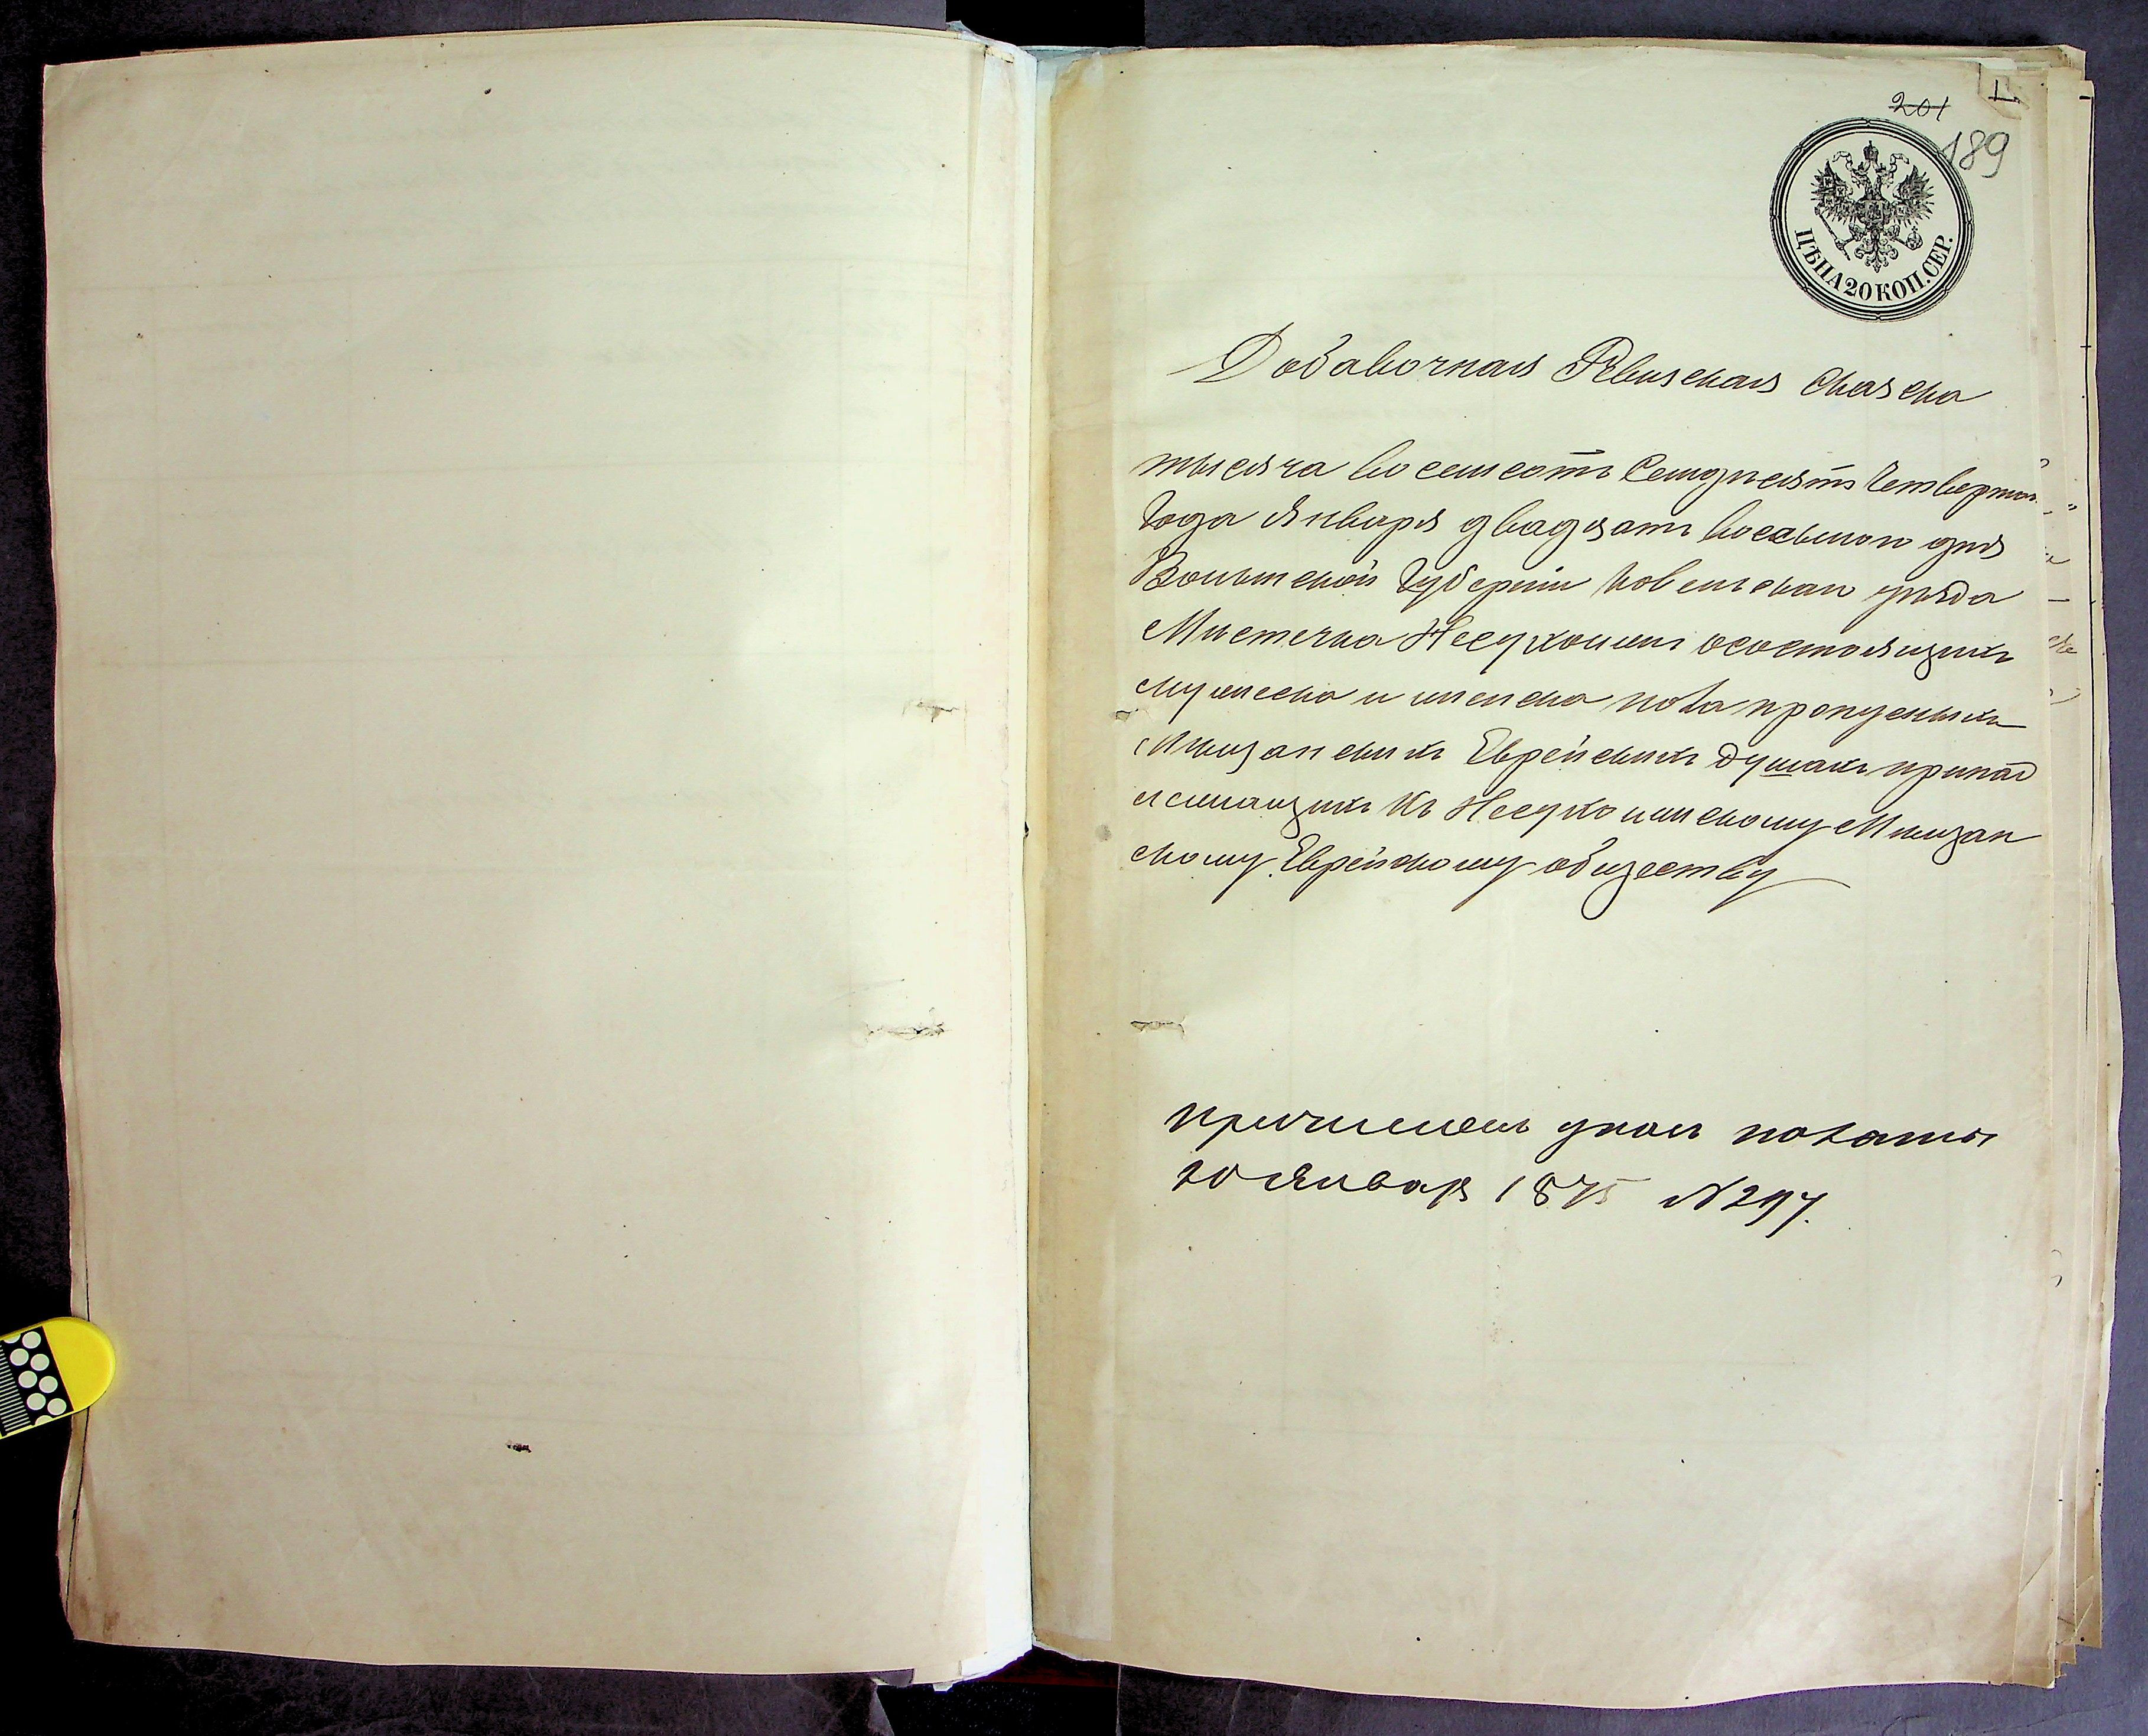 201 1
189
ЦѢНА 20 КОП. СЕР.
Добавочная Ревизская сказка
тысяча восемсотъ Семдзесятъ Четвертого
Года Января двадзать восьмого дня
Волынской Губерніи Ковельскаго уѣзда
Мистечка Несухоижи осостоящихъ
мужеска и женска пола пропусныхъ
Мищанскихъ Еврейскихъ душахъ принад
лежащихъ Къ Несухоижскому Мищан
скому Еврейскому обществу
причислены указ. палаты
20 Января 1875 № 297.